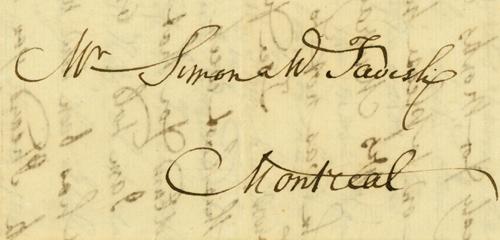 Mr Simon McTavish
Montreal